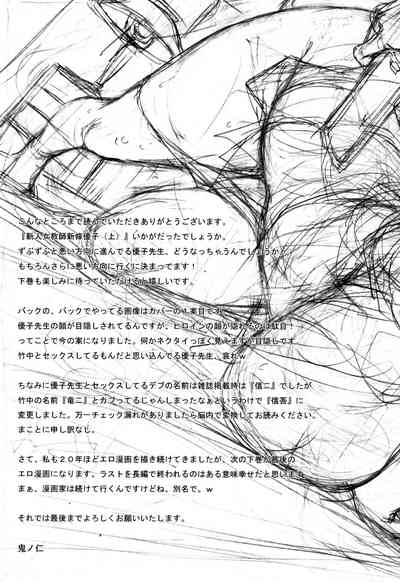 こんなところまで読んでいただきありがとうございます。
『新人女教師新條優子(上)』いかがだったでしょうか。
ずぶずぶと悪い方向に進んでる優子先生、どうなっちゃうんでしょうか。
もちろんさらに悪い方向に行くに決まってます!
下巻も楽しみに待っていただけると嬉しいです。
バックの、バックでやってる画像はカバーの1案目です。
優子先生の顔が目隠しされてるんですが、ヒロインの顔が隠れるのは駄目!
ってことで今の案になりました。何かネクタイっぽく見えますが目隠しです
竹中とセックスしてるもんだと思い込んでる優子先生、哀れw
ちなみに優子先生とセックスしてるデブの名前は雑誌掲載時は『信二』でしたが
竹中の名前『竜二』とカブってるじゃんしまったなぁというわけで『信吾』に
変更しました。万一チェック漏れがありましたら脳内で変換してお読みください。
まことに申し訳なし。
さて、私も20年ほどエロ漫画を描き続けてきましたが、次の下巻が最後の
エロ漫画になります。ラストを長編で終われるのはある意味幸せだと思います
まぁ、漫画家は続けて行くんですけどね、別名で。w
それでは最後までよろしくお願いいたします。
鬼ノ仁